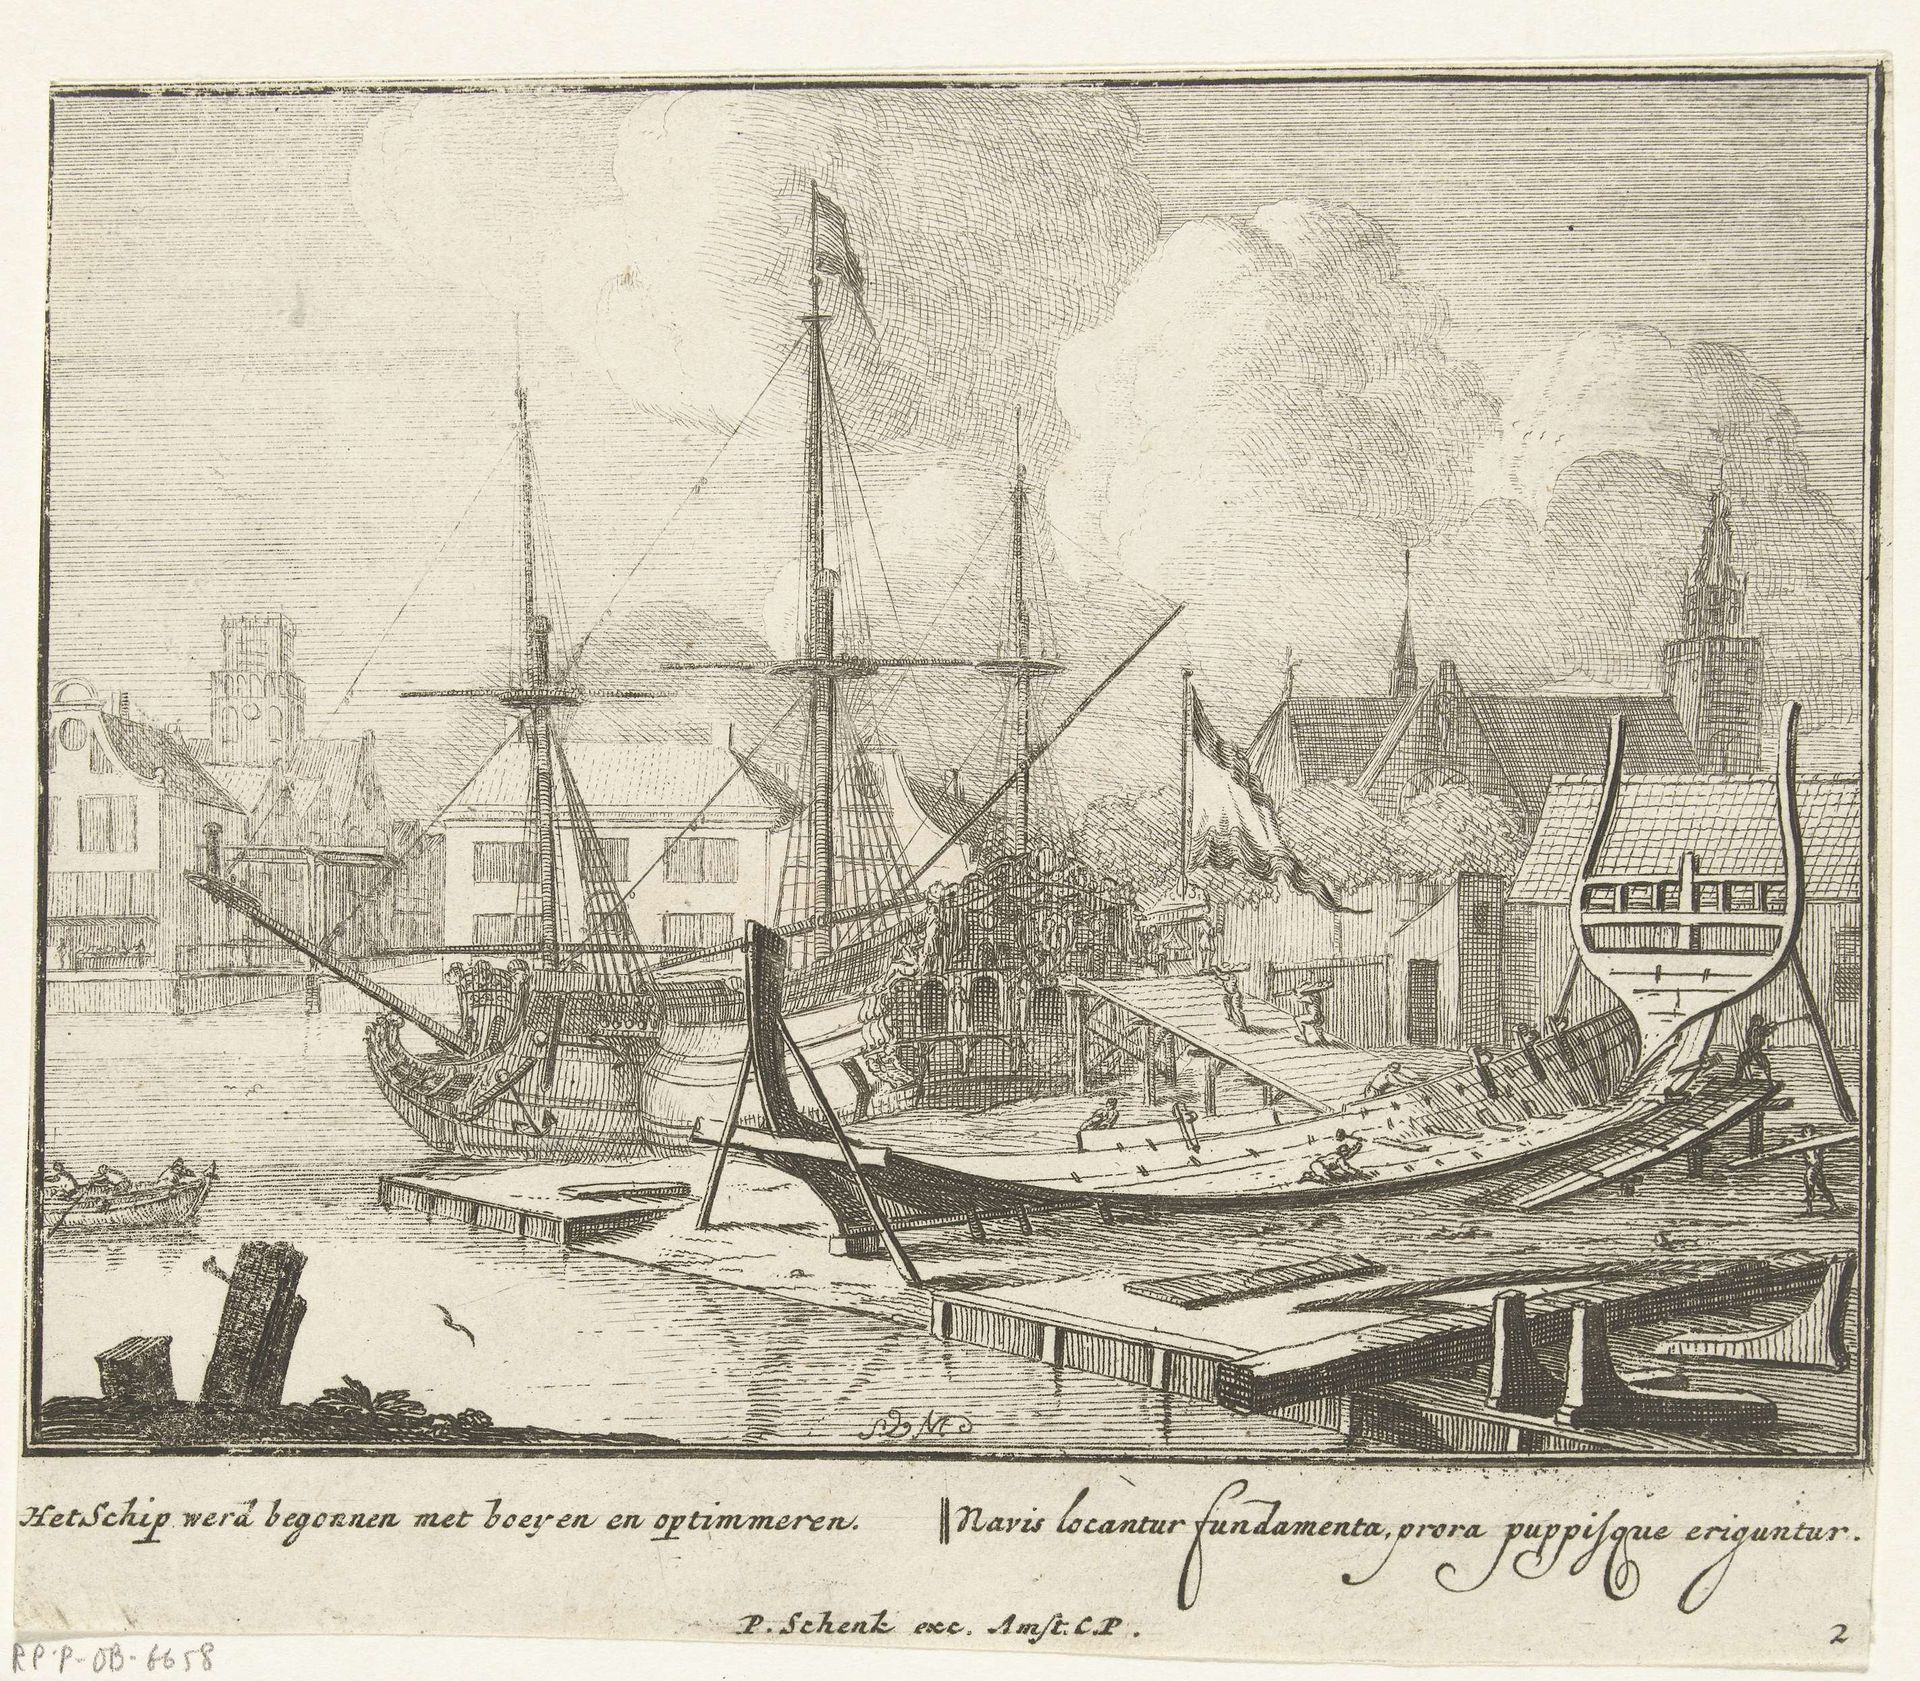 HetSchip werd begonnen met boeyen en optimmeren.
Navis locantur fundamenta, prora puppisque eriguntur.
P. Schenk exc. Amst. C. P.
2
RP-P-OB-6658